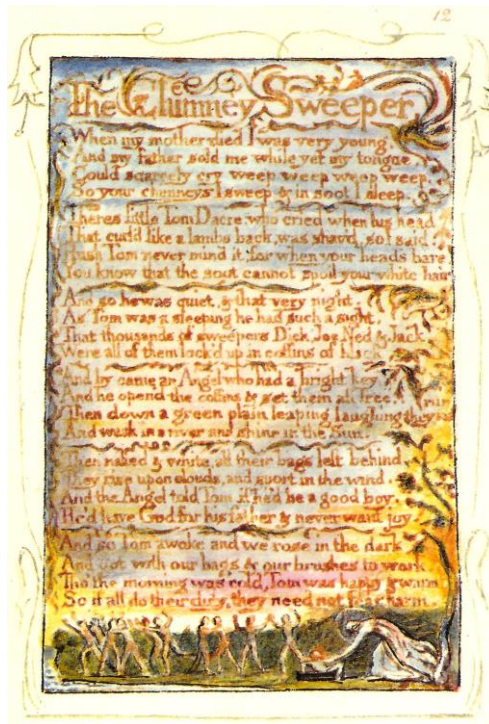 12
The Chimney Sweeper
When my mother died I was very young,
And my father sold me while yet my tongue,
Could scarcely cry weep weep weep weep,
So your chimneys I sweep & in soot I sleep.
Theres little Tom Dacre, who cried when his head
That curl'd like a lambs back, was shav'd, so I said.
Hush Tom never mind it, for when your heads bare,
You know that the soot cannot spoil your white hair
And so he was quiet, & that very night,
As Tom was a sleeping he had such a sight,
That thousands of sweepers Dick, Joe, Ned & Jack
Were all of them lock'd up in coffins of black,
And by came an Angel who had a bright key,
And he open'd the coffins & set them all free.
Then down a green plain leaping laughing they run
And wash in a river and shine in the Sun.
Then naked & white, all their bags left behind,
They rise upon clouds, and sport in the wind.
And the Angel told Tom, if he'd be a good boy,
He'd have God for his father & never want joy.
And so Tom awoke and we rose in the dark
And got with our bags & our brushes to work.
Tho' the morning was cold, Tom was happy & warm,
So if all do their duty, they need not fear harm.